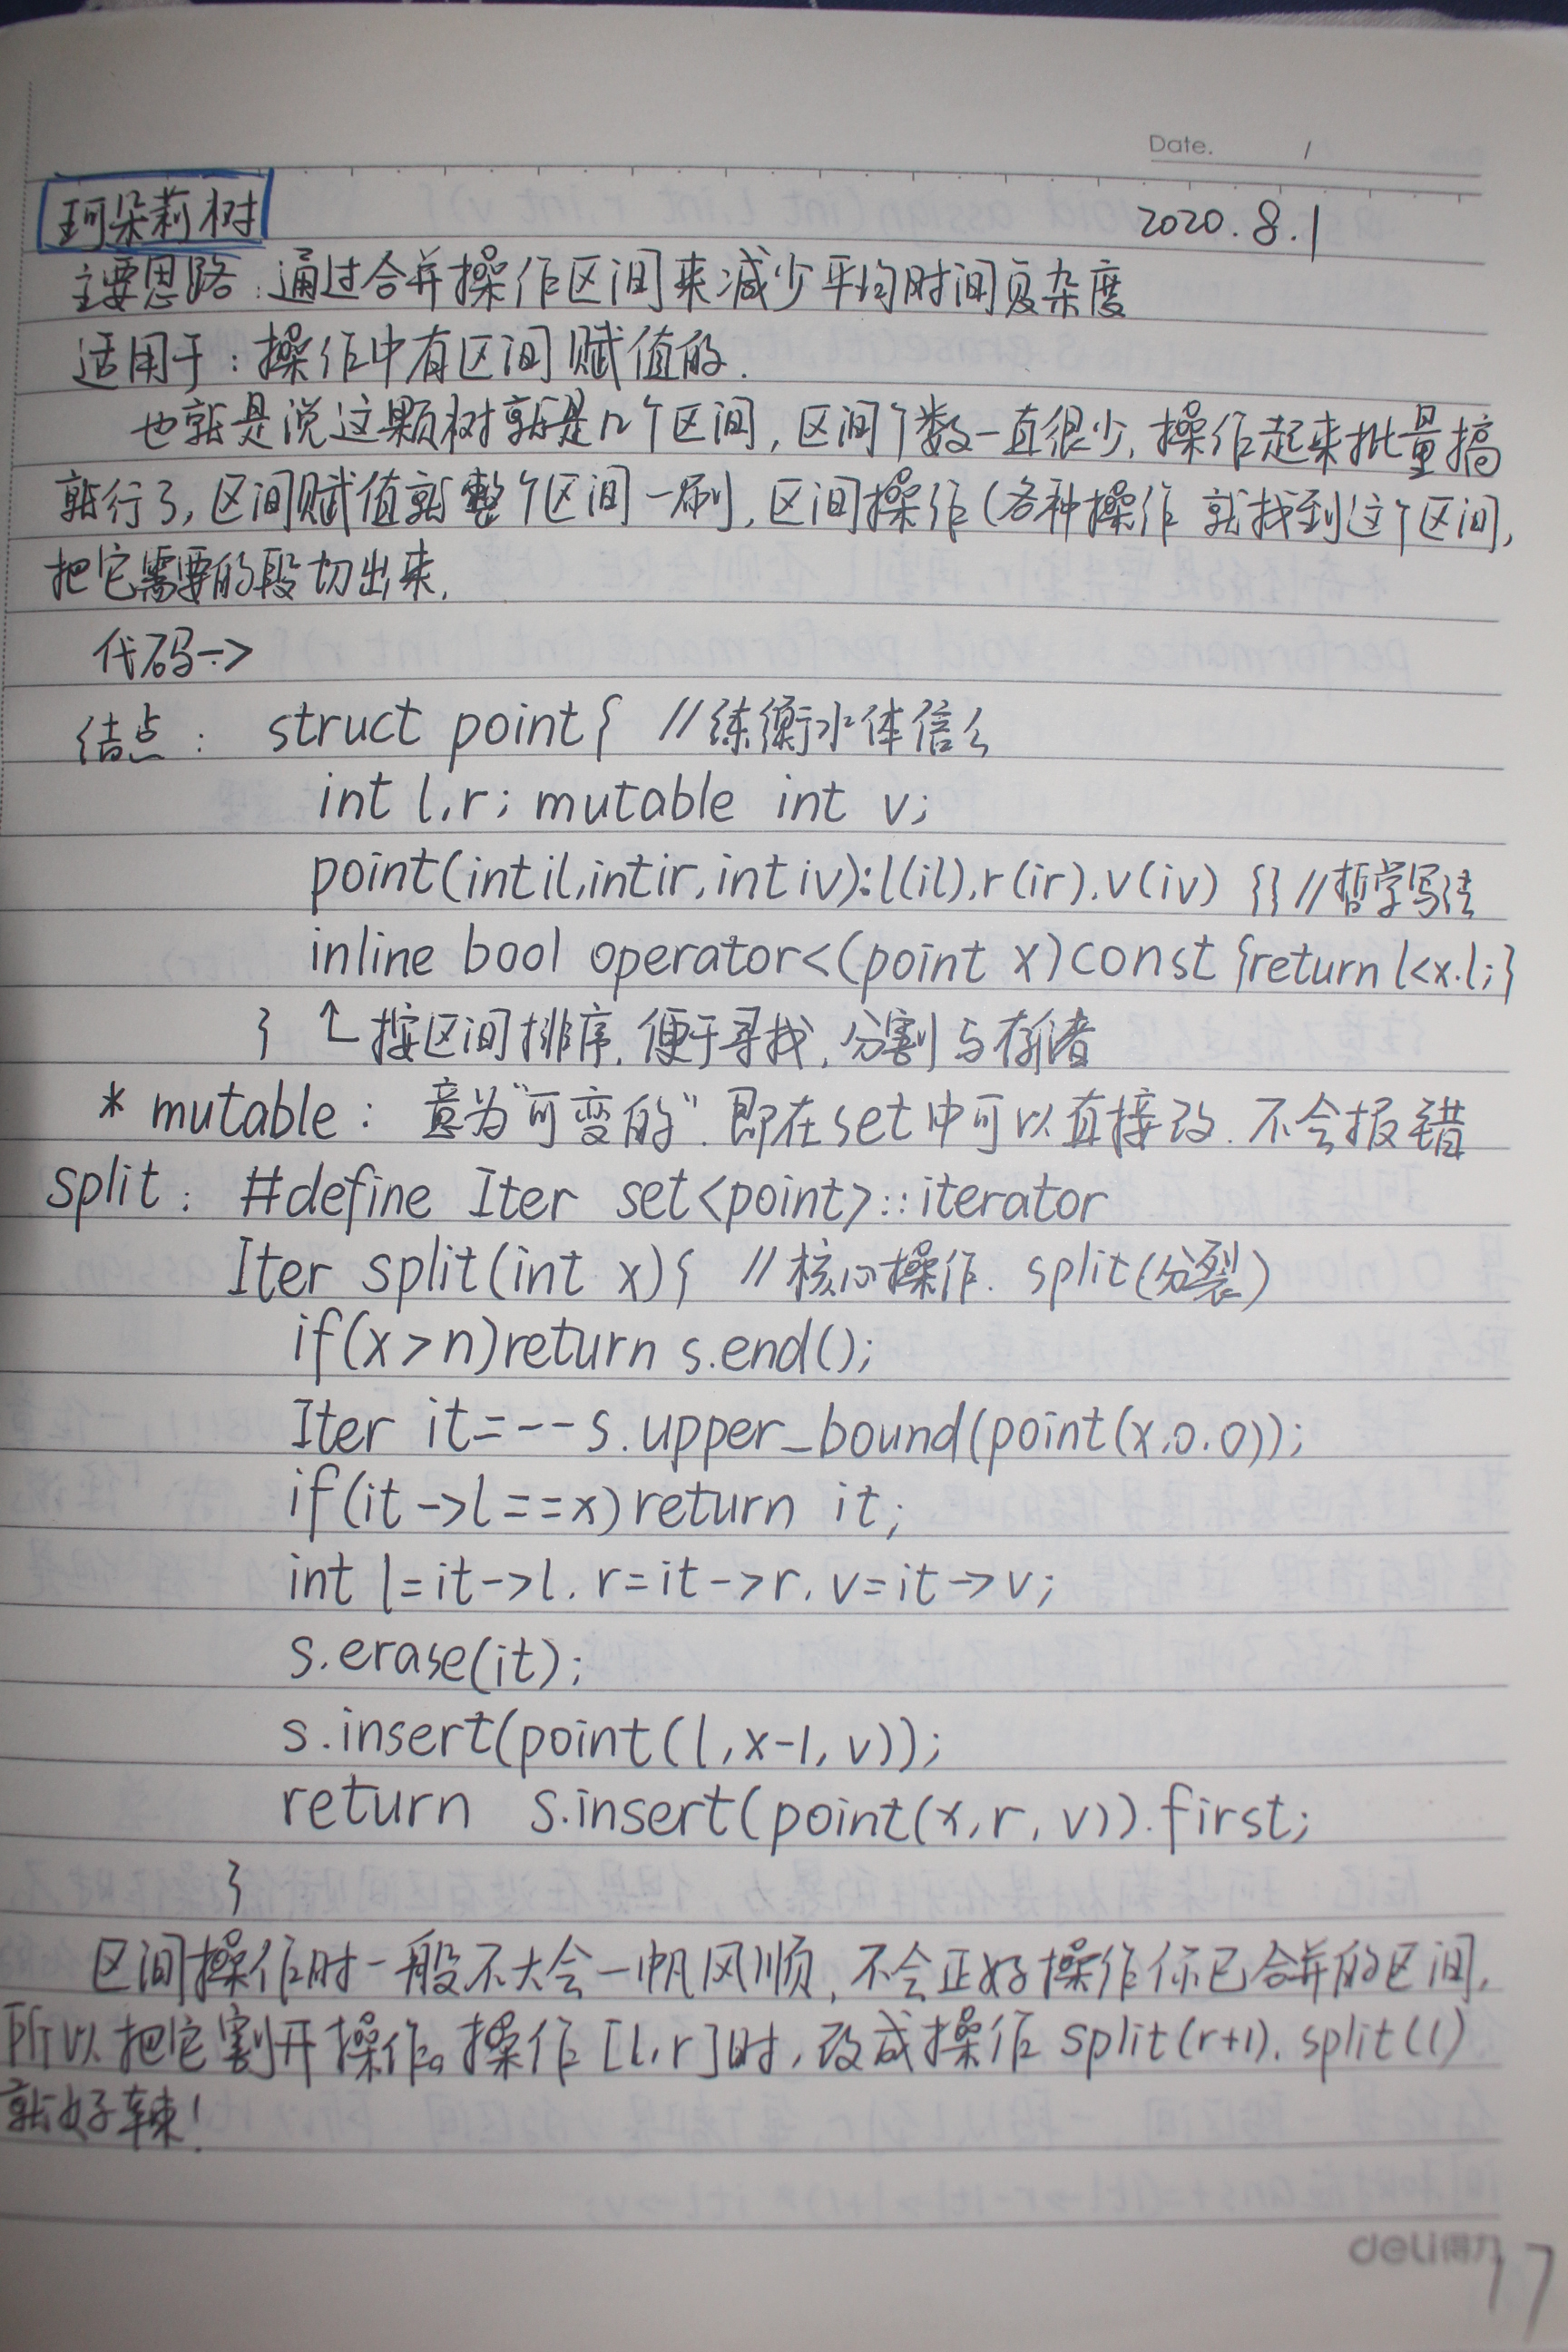 Date. /
珂朵莉树
2020.8.1
主要思路:通过合并操作区间来减少平均时间复杂度
适用于:操作中有区间赋值的.
也就是说这颗树就是几个区间,区间个数一直很少,操作起来批量搞
就行了,区间赋值就整个区间一刷,区间操作(各种操作 就找到这个区间,
把它需要的段切出来.
代码->
结点: struct point{ //练衡水体信么
int l,r; mutable int v;
point(int il,int ir,int iv):l(il),r(ir),v(iv) {} //哲学写法
inline bool operator<(point x)const{return l<x.l;}
} ↑按区间排序,便于寻找,分割与存储
* mutable: 意为"可变的".即在set中可以直接改.不会报错
split: #define Iter set<point>::iterator
Iter split(int x){ //核心操作. split(分裂)
if(x>n)return s.end();
Iter it=--s.upper_bound(point(x,0,0));
if(it->l==x)return it;
int l=it->l, r=it->r, v=it->v;
s.erase(it);
s.insert(point(l,x-1,v));
return s.insert(point(x,r,v)).first;
}
区间操作时一般不大会一帆风顺,不会正好操作你已合并的区间,
所以把它割开操作。操作[l,r]时,改成操作split(r+1).split(l)
就好辣!
deli得力
17